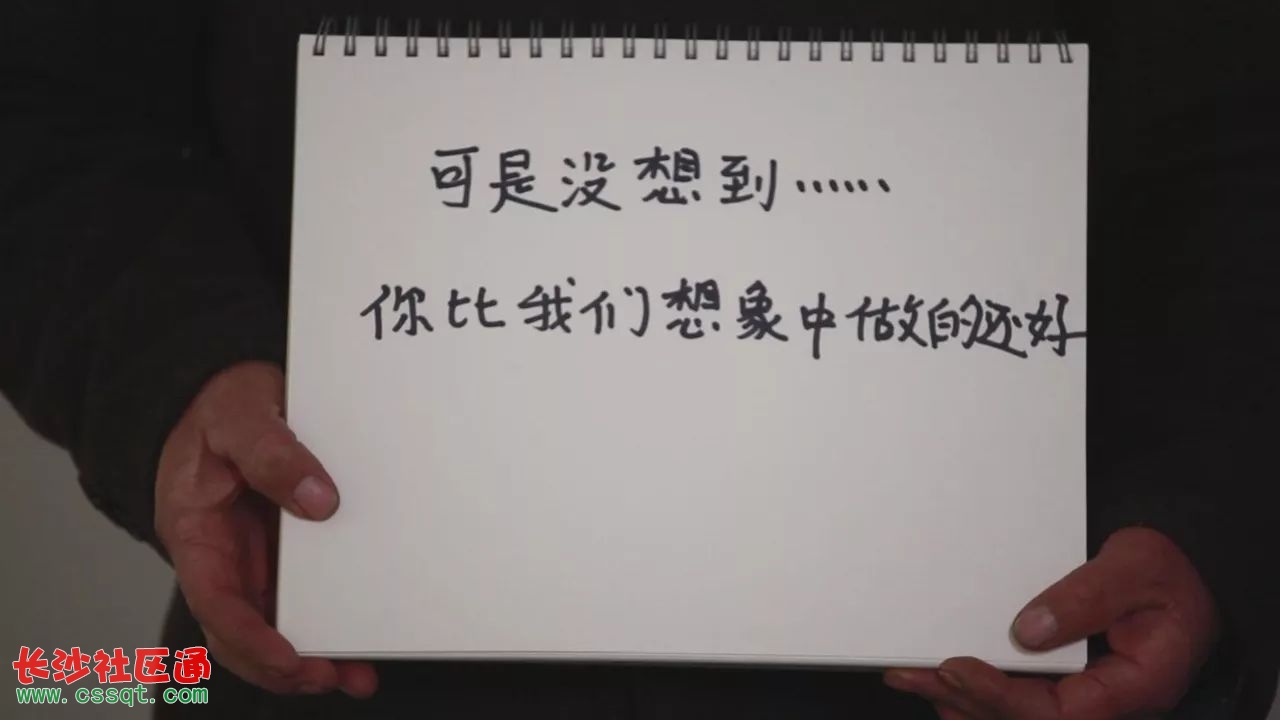 可是没想到……
你比我们想象中做的还好
长沙社区通
www.cssqt.com